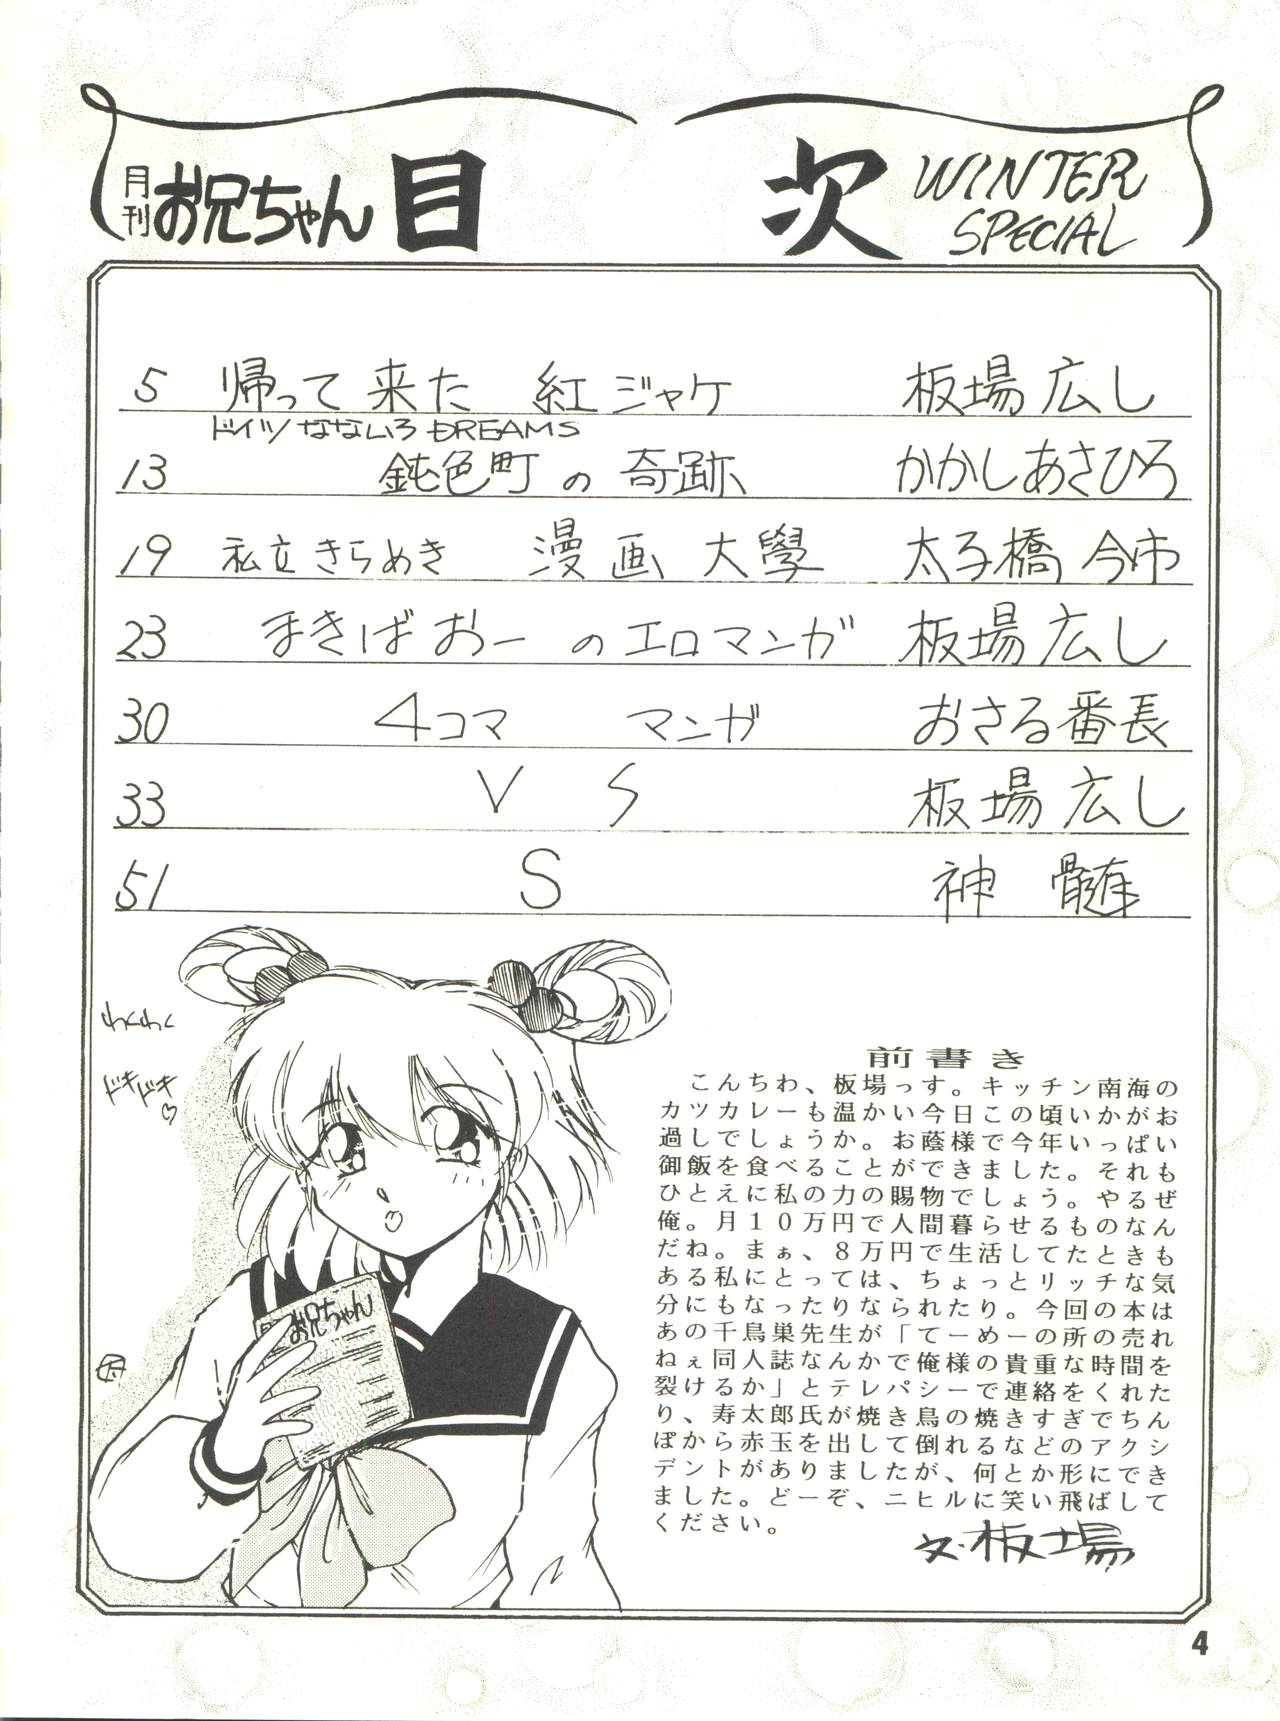 月刊 お兄ちゃん 目 次 WINTER SPECIAL
5 帰って来た 紅ジャケ 板場広し
ドイツ なないろ DREAMS
13 鈍色町の奇跡 かかしあさひろ
19 私立きらめき 漫画大學 太子橋今市
23 まきばおーのエロマンガ 板場広し
30 4コマ マンガ おさる番長
33 VS 板場広し
51 S 神髄
わくわく
ドキドキ♡
お兄ちゃん
前書き
こんちわ、板場っす。キッチン南海の
カツカレーも温かい今日この頃いかがお
過しでしょうか。お蔭様で今年いっぱい
御飯を食べることができました。それも
ひとえに私の力の賜物でしょう。やるぜ
俺。月10万円で人間暮らせるものなん
だね。まぁ、8万円で生活してたときも
ある私にとっては、ちょっとリッチな気
分にもなったりなられたり。今回の本は
あの千鳥巣先生が「てーめーの所の売れ
ねぇ同人誌なんかで俺様の貴重な時間を
裂けるか」とテレパシーで連絡をくれた
り、寿太郎氏が焼き鳥の焼きすぎでちん
ぽから赤玉を出して倒れるなどのアクシ
デントがありましたが、何とか形にでき
ました。どーぞ、ニヒルに笑い飛ばして
ください。
文・板場
4